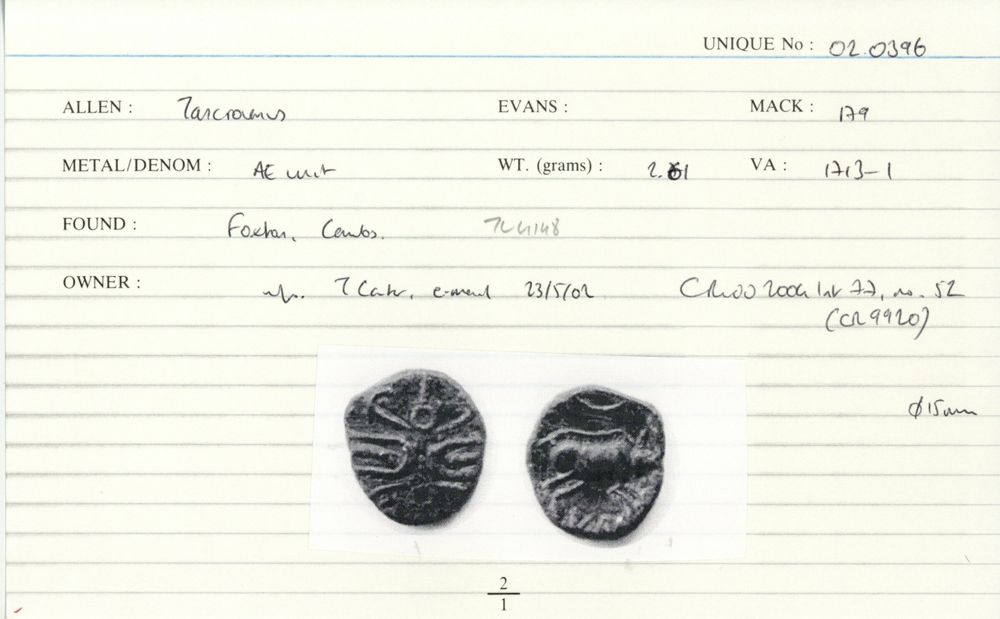 UNIQUE No : 02.0396
ALLEN : Tasciovanus EVANS : MACK : 179
METAL/DENOM : AE unit WT. (grams) : 2.61 VA : 1713-1
FOUND : Foxton, Cambs. TL4148
OWNER : e-mail 23/5/02 no. 52
(CR9920)
Ø15mm
2
1